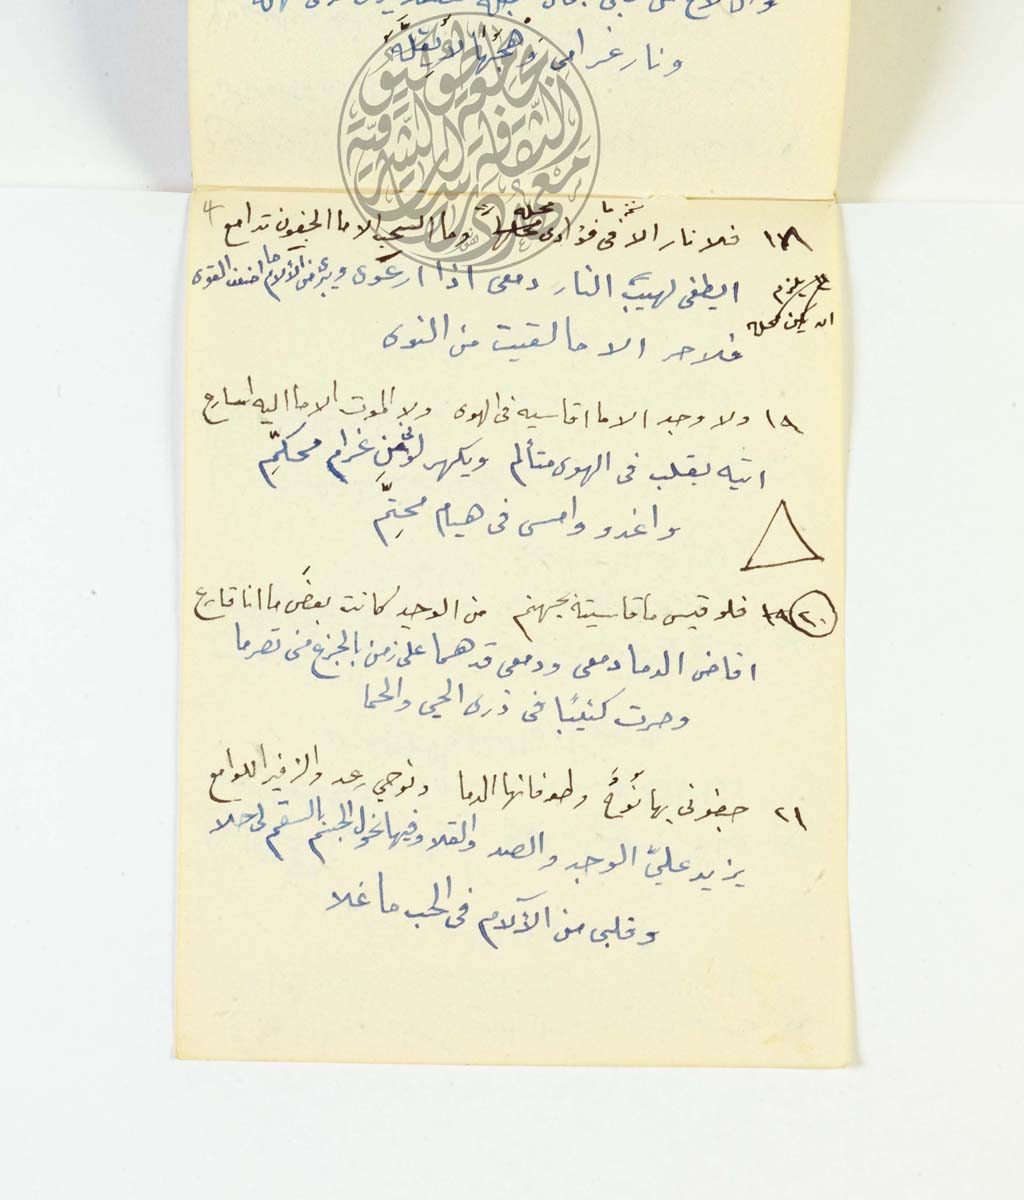 ونار غرامى وهجها لا
٤
١٨ فلا نار الا فى فؤادى محله وما السحب الا ما الجفون تدامع
ايطفى لهيبَ النار دمعى اذا ارعوى ويبرى من الآلام ما اضعف القوى
يلزم ان يكن محله
فلا حر الا ما لقيت من النوى
١٩ ولا وجد الا ما اقاسيه فى الهوى ولا الموت الا ما اليه اسارع
اتيه بقلب فى الهوى متألم ويكهر لونى من غرام محكّم
واغدو وامسى فى هيام محتّم
٢٠ فلو قيس ما قاسيته بجهنم من الوجد كانت بعضَ ما انا قارع
افاض الدما دمعى ودمعى قد هما على زمن بالجزع منى تصرما
وحرت كئيبًا فى ذرى الحي والحما
٢١ جفونى بها نُوحٌ وطوفانها الدما ونوحي رعد والزفير اللوامع
يزيد عليّ الوجد والصد والقلا وفيها نحول الجسم بالسقم لى حلا
وقلبى من الآلام فى الحب ما غلا